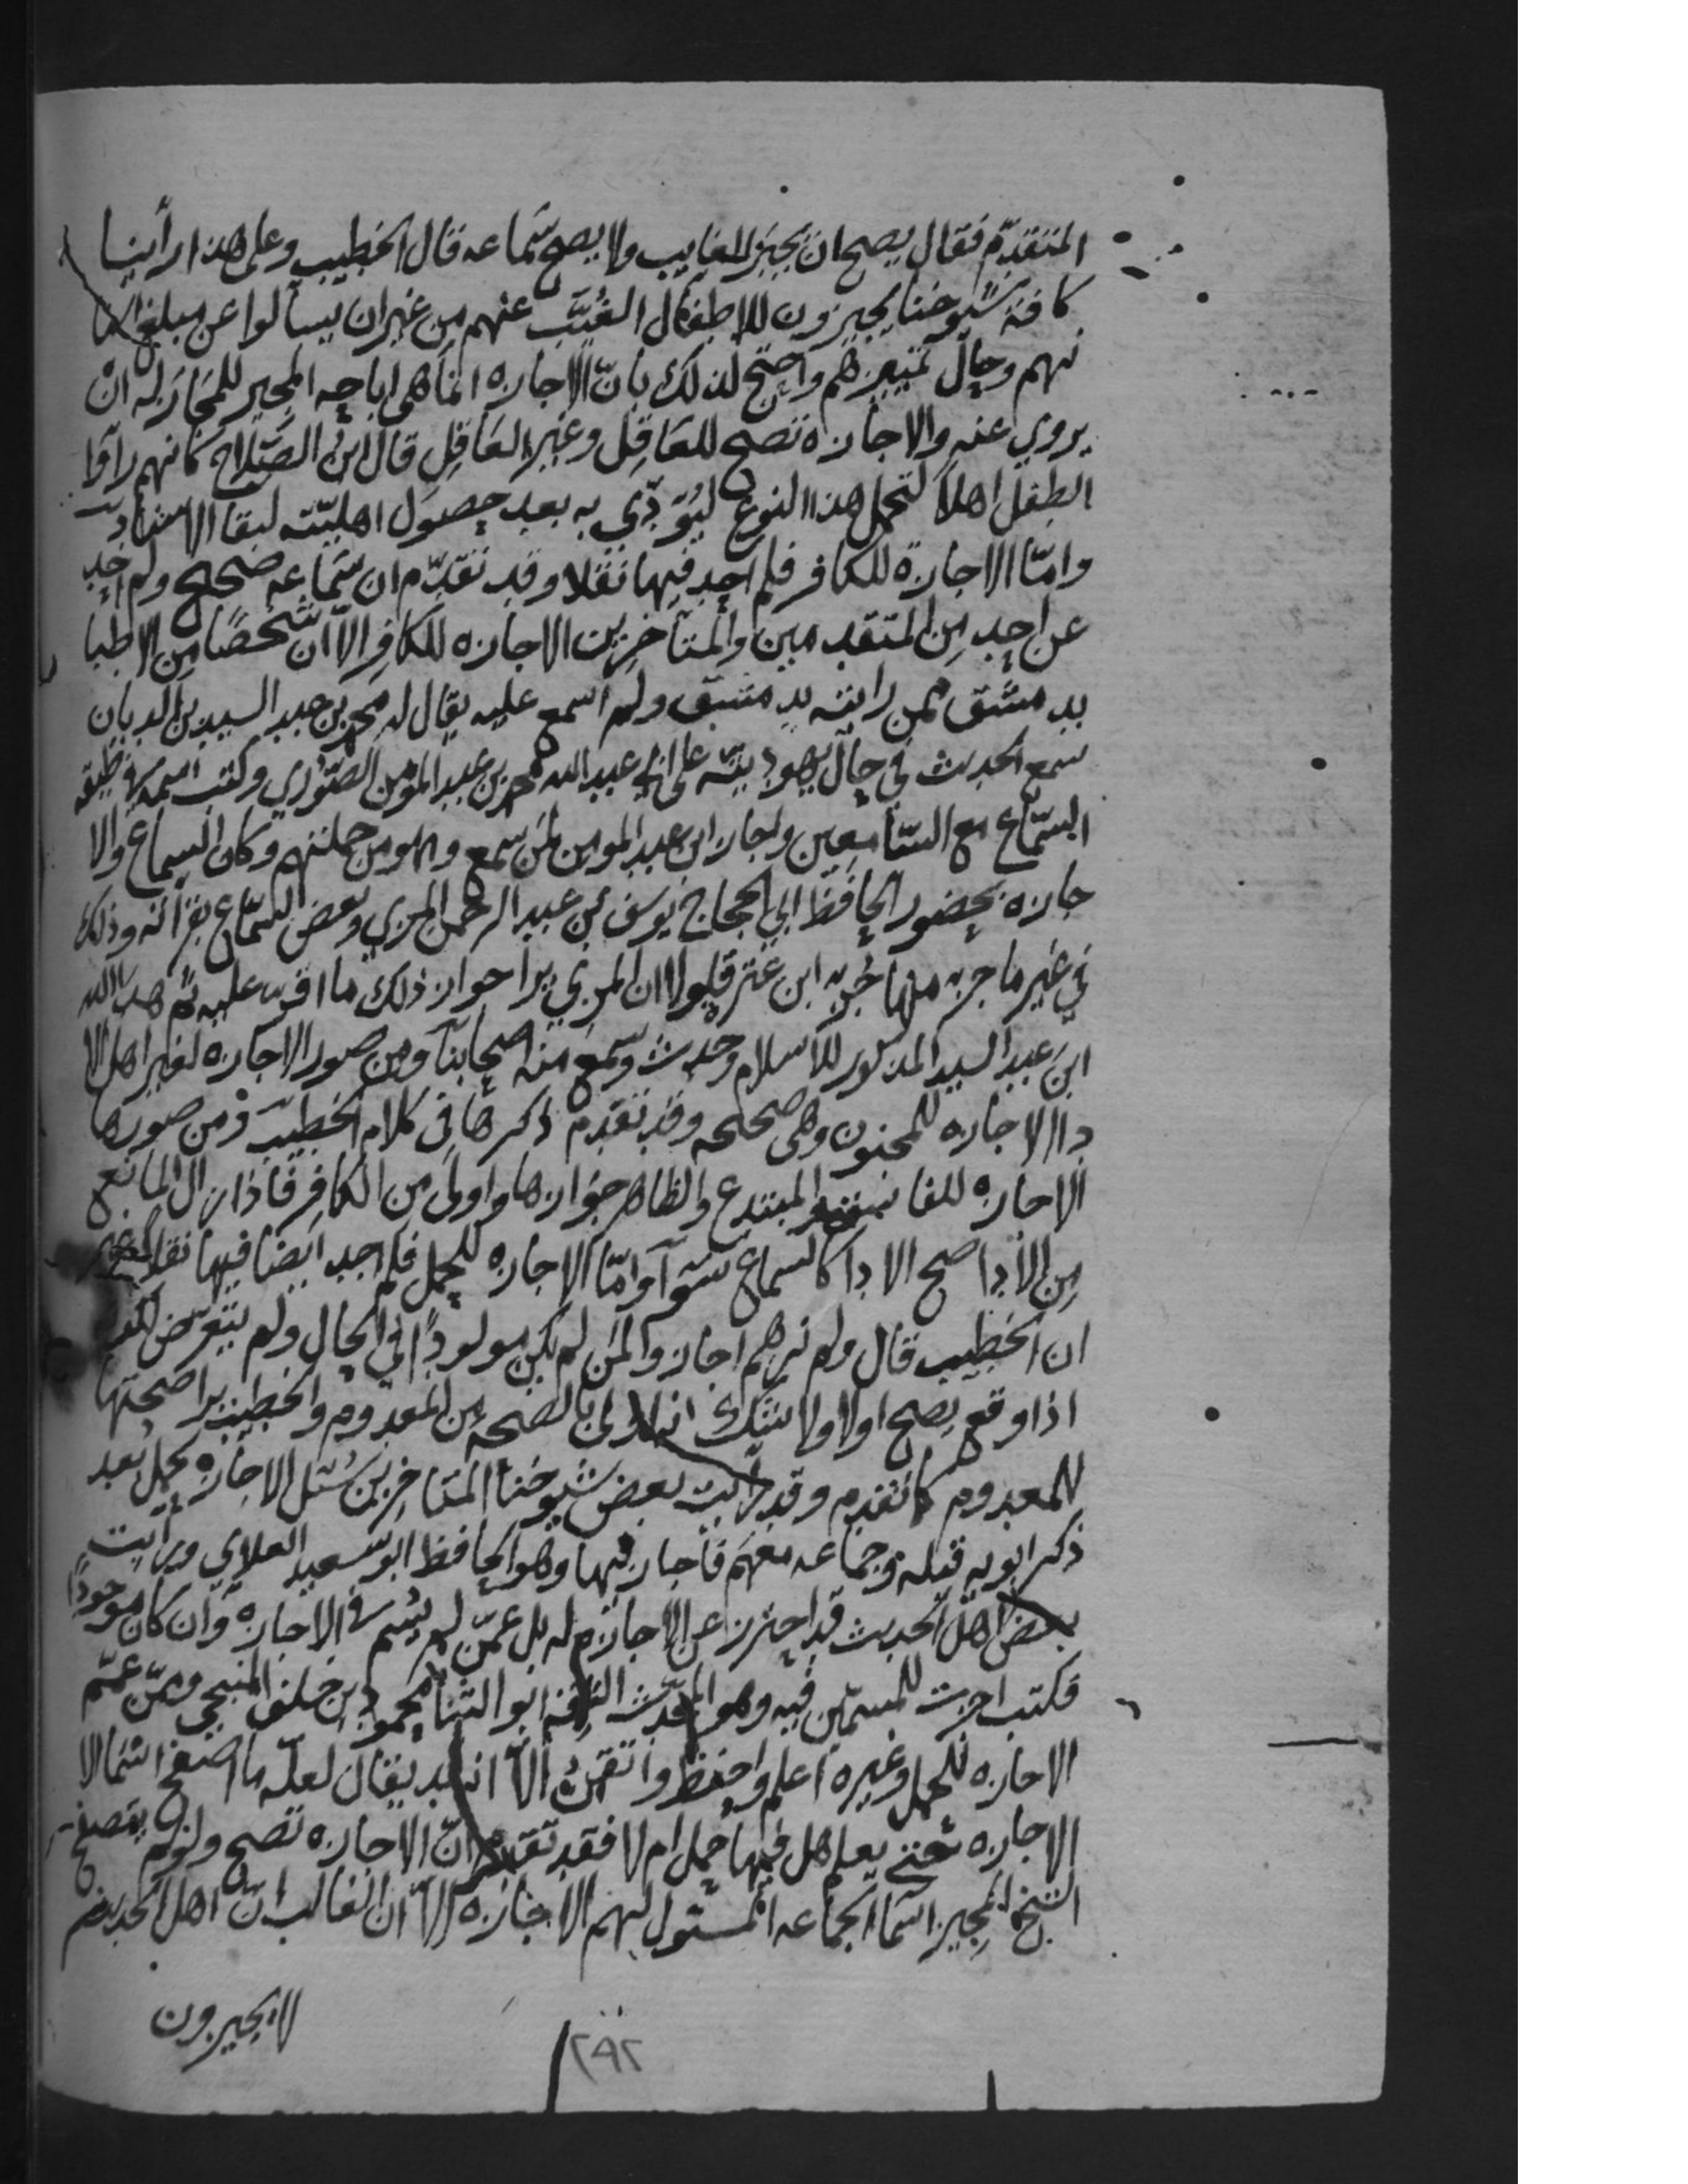 المتقدّم فقال يصح ان يجيز للغايب ولا يصح سماعه قال الخطيب وعلى هذا رأينا
كافة شيوخنا يجيزون للاطفال الغُيَّب عنهم من غير ان يسألوا عن مبلغ اسنا
نهم وحال تمييزهم واحتج لذلك بانّ الاجازه انما هى اباحه المجيز للمجاز له ان
يروي عنه والاجازه تصح للعاقل وغير العاقل قال ابن الصّلاح كانهم رأوا
الطفل اهلا لتحمل هذا النوع ليُؤدّي به بعد حصول اهليّته لبقا الاسناد
وامّا الاجازة للكافر فلم اجد فيها نقلا وقد تقدّم ان سماعه صحيح ولم اجد
عن احد من المتقدمين والمتأخرين الاجازه للكافر الاّ ان شخصًا من الاطبا
بدمشق ممن رايته بدمشق ولم اسمع عليه يقال له محمد بن عبد السيد بن الديان
سمع الحديث في حال يهوديته على ابي عبد الله محمد بن عبد المؤمن الصّوري وكتب اسمه في طبقه
السّماع مع السّامعين واجاز ابن عبد المومن لمن سمع وهو من جملتهم وكان السماع والا
جازه بحضور الحافظ ابي الحجاج يوسف بن عبد الرحمن المزي وبعض السماع بقراته وذلك
في غير ما جزء منها جزء ابن عترة فلولا ان المزي يرا جواز ذلك ما اقر عليه ثم هدى الله
ابن عبد السيد المذكور للاسلام وحدث وسمع منه اصحابنا ومن صور الاجازه لغير اهل الا
دا الاجازه للمجنون وهي صحيحه وقد تقدم ذكرها في كلام الخطيب ومن صورها
الاجازه للفاسق والمبتدع والظاهر جوازها واولى من الكافر فاذا زال المانع
من الأدا صح الادا كالسماع سوآ وامّا الاجازه للحمل فلم اجد ايضا فيها نقلا غير
ان الخطيب قال ولم نرهم اجازوا لمن لم يكن مولودًا في الحال ولم يتعرّض لكونه
اذا وقع يصح اولا ولا شك انه اولى بالصحه من المعدوم والخطيب يرا صحتها
للمعدوم كما تقدم وقد رايت بعض شيوخنا المتاخرين سُئل الاجازه لحمل بعد
ذكر ابويه قبله وجماعه معهم فاجاز فيها وهو الحافظ ابو سعيد العلاي ورايت
بعض اهل الحديث قد احترز عن الاجازه له بل عمّن لم يُسم في الاجازه وان كان موجودًا
فكتب اجزت للمسمّين فيه وهو المحدّث الثقة ابو الثنا محمود بن خلف المنبجي ومن عمّم
الاجازه للحمل وغيره اعلم واحفظ واتقن الاّ انه قد يقال لعلّه ما اصفح اسما الا
الاجازه حتى يعلم هل فيها حمل ام لا فقد تقدم انّ الاجازه تصح ولو لم يتصفح
الشيخ المجيز اسما الجماعه المسئول لهم الاجازه الاّ ان الغالب انّ اهل الحديث
لا يجيزون
٢٩٢